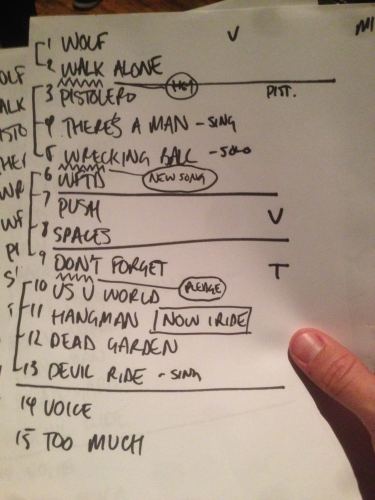 1 WOLF V
2 WALK ALONE
HEY
3 PISTOLERO PIST.
4 THERE'S A MAN - SING
5 WRECKING BALL - SOLO
6 WFTD NEW SONG
7 PUSH V
8 SPACES
9 DON'T FORGET T
10 US V WORLD PLEDGE
11 HANGMAN NOW I RIDE
12 DEAD GARDEN
13 DEVIL RIDE - SING
14 VOICE
15 TOO MUCH